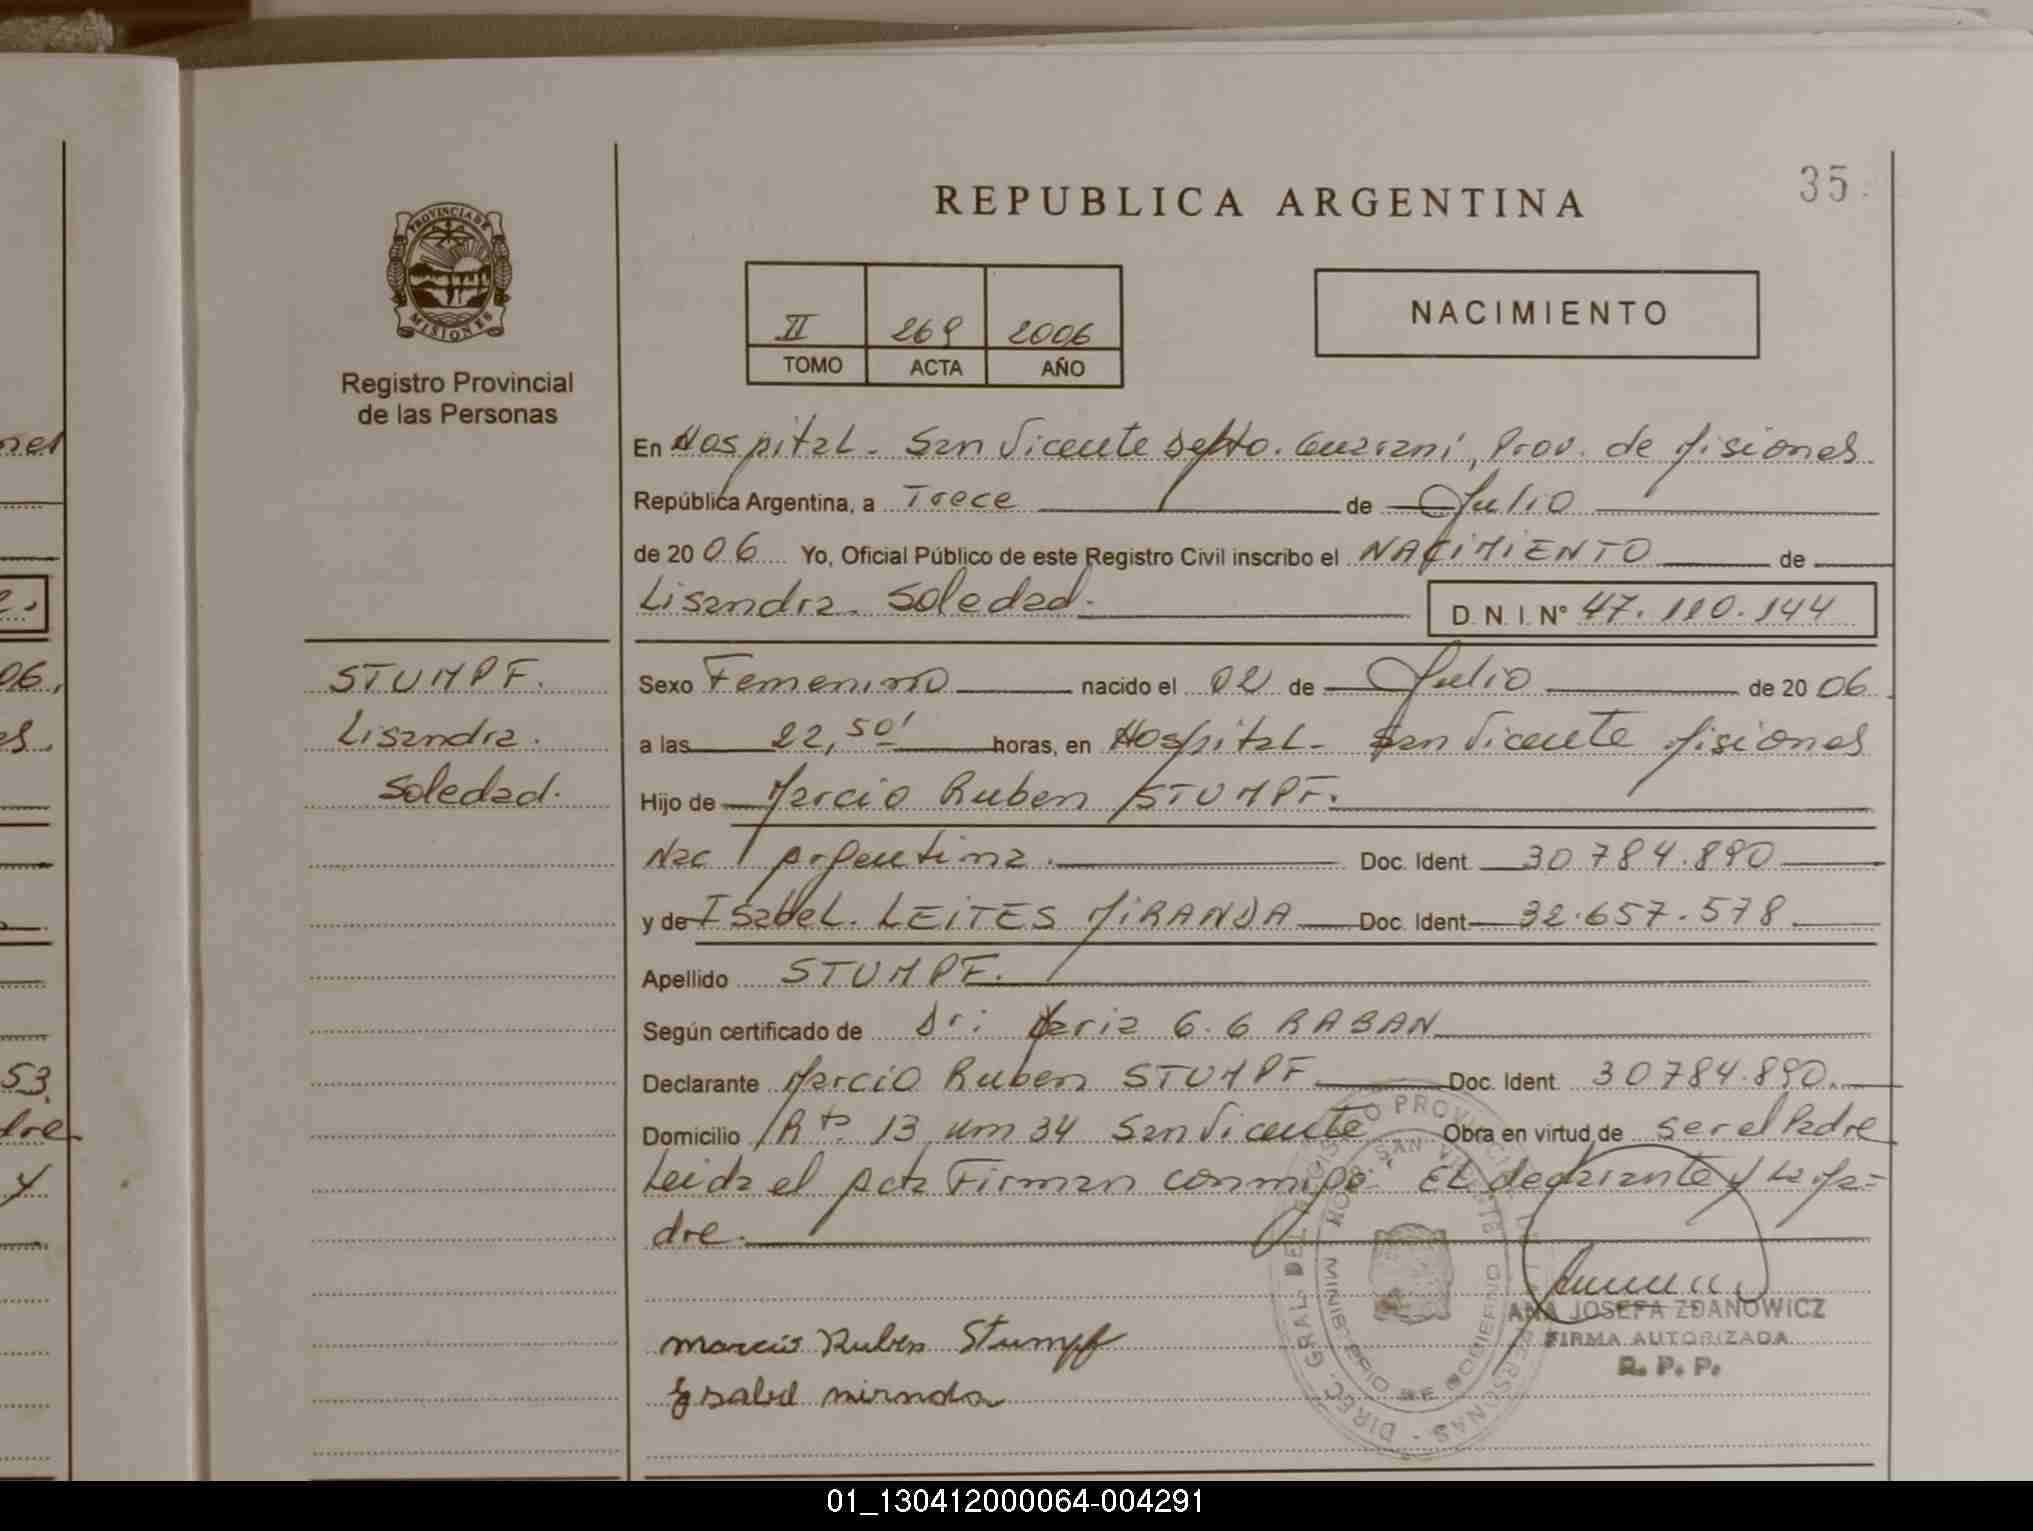 35
REPUBLICA ARGENTINA
PROVINCIA DE
MISIONES
Registro Provincial
de las Personas
II 269 2006
TOMO ACTA AÑO
NACIMIENTO
En Hospital. San Vicente Depto. Guaraní, Prov. de Misiones
República Argentina, a Trece de Julio
de 2006 Yo, Oficial Público de este Registro Civil inscribo el NACIMIENTO de
Lisandra. Soledad.
D.N.I. N° 47.110.144
STUMPF.
Lisandra.
Soledad.
Sexo Femenino nacido el 02 de Julio de 2006
a las 22,50' horas, en Hospital. San Vicente Misiones
Hijo de Marcio Ruben STUMPF.
Nac Argentina. Doc. Ident. 30.784.890
y de Isabel. LEITES MIRANDA Doc. Ident 32.657.578.
Apellido STUMPF.
Según certificado de Dr: Maria G.G RABAN
Declarante Marcio Ruben STUMPF Doc. Ident. 30784.890.
Domicilio Rta 13 km 34 San Vicente Obra en virtud de ser el Padre
Leida el Acta Firman conmigo: El declarante y la Ma=
dre.
Marcio Ruben Stumpf
Ysabel miranda
ANA JOSEFA ZDANOWICZ
FIRMA AUTORIZADA
R. P. P.
DIREC. GRAL. DEL REGISTRO PROVINCIAL DE LAS PERSONAS
HOSP. SAN VICENTE
MINISTERIO DE GOBIERNO
nel
2.
06,
es.
53.
dre
y
01_130412000064-004291